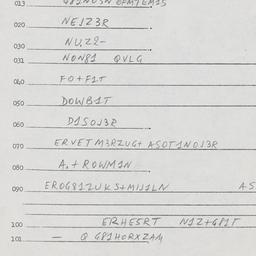 020 NEJZ3R
030 NUZ2-
031 NON81 QVLG
040 FO+F1T
050 DOWB1T
060 D1SOJ3R
070 ERVETM3RZUG+ ASOT1NOJ3R
080 A.+ROWM1N
090 EROG81ZUKS+MIJ1LN AS
100 ERHESRT N1Z+681T
101 — Q G81HORXZAM